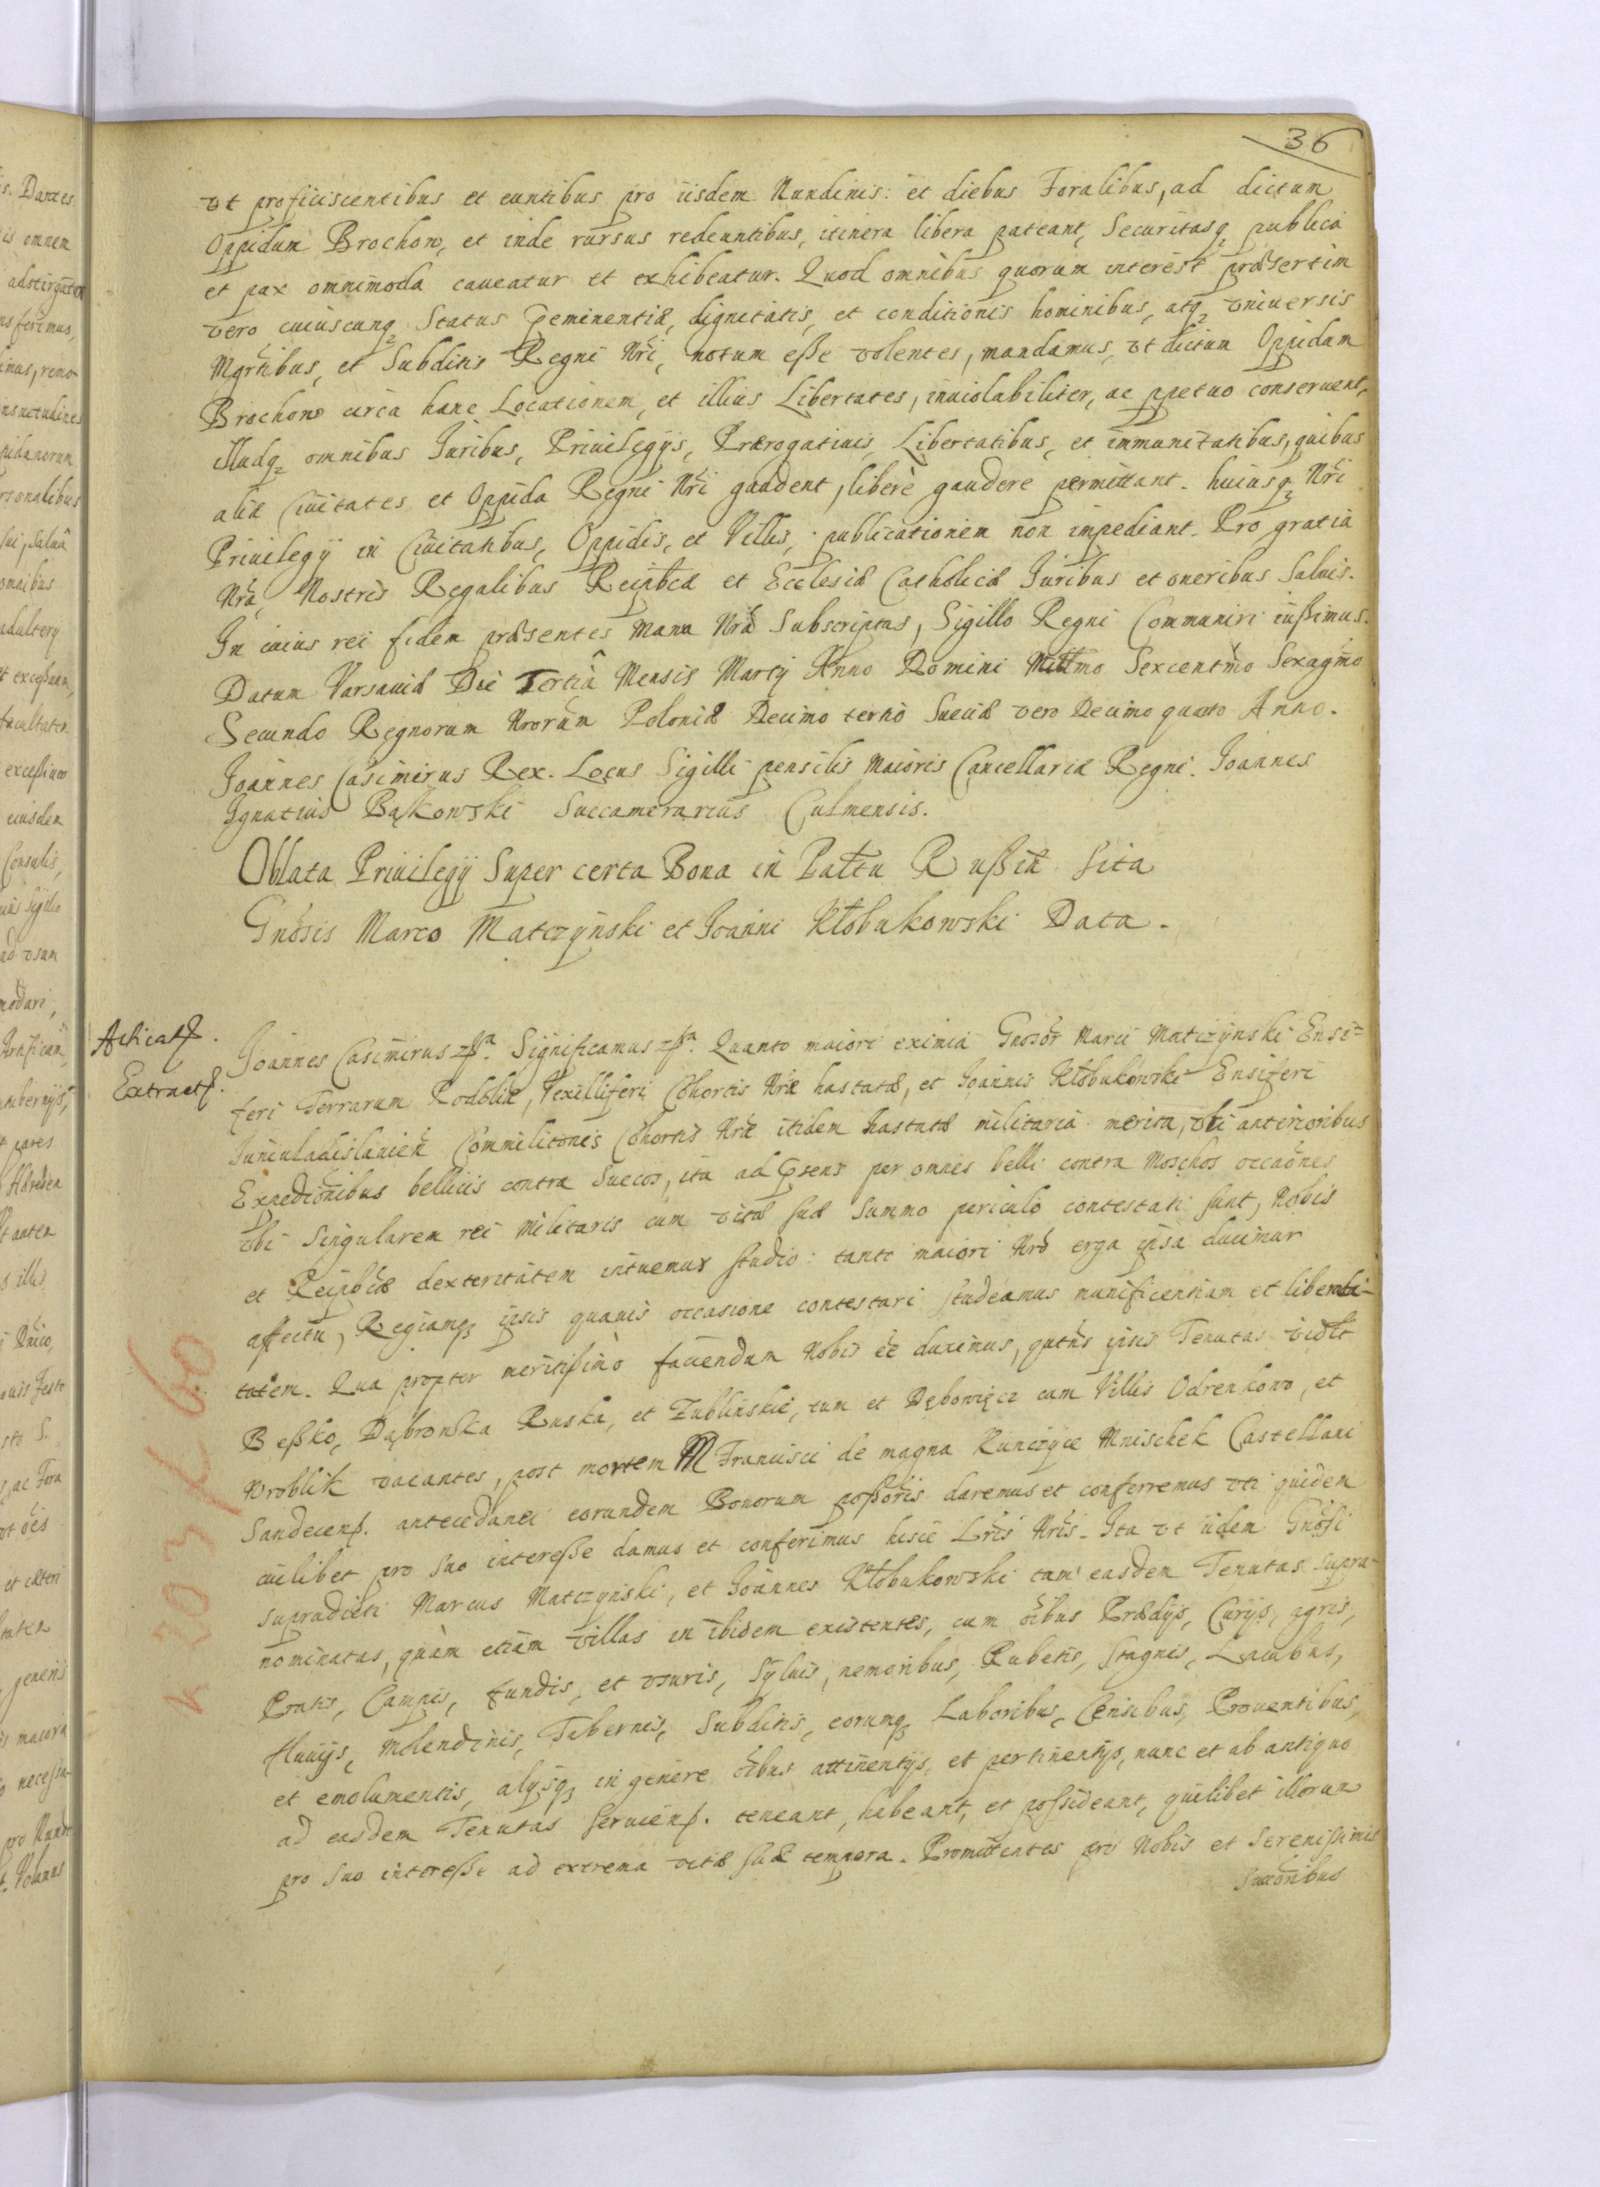 36
vt proficiscentibus et euntibus pro iisdem Nundinis: et diebus Foralibus, ad dictum
Oppidum Brochow, et inde rursus redeuntibus, itinera libera pateant, Securitasq, publica
et pax omnimoda caueatur et exhibeatur. Quod omnibus quorum interest præsertim
vero cuiuscunq, Status Peminentiæ, dignitatis, et conditionis hominibus, atq, vniuersis
Mgrtibus, et Subditis Regni Nri, notum esse volentes, mandamus, vt dictum Oppidum
Brochow circa hanc Locationem, et illius Libertates, inuiolabiliter, ac ppetuo conseruent,
illudq, omnibus Juribus, Priuilegijs, Prærogatiuis, Libertatibus, et immunitatibus, quibus
aliæ Ciuitates et Oppida Regni Nri gaudent, liberè gaudere permittant. huiusq, Nri
Priuilegij in Ciuitatibus, Oppidis, et Villis, publicationem non impediant. Pro gratia
Nra, Nostris Regalibus Reipbcæ et Ecclesiæ Catholicæ Juribus et oneribus Saluis.
In cuius rei fidem præsentes Manu Nra Subscriptas, Sigillo Regni Communiri iussimus.
Datum Varsauiæ Die Tertiâ Mensis Martij Anno Domini Millmo Sexcentmo Sexagmo
Secundo Regnorum Nrorum Poloniæ Decimo tertio Sueciæ vero Decimo quarto Anno.
Joannes Casimirus Rex. Locus Sigilli pensilis Maioris Cancellariæ Regni. Joannes
Ignatius Bąkowski Succamerarius Culmensis.
Oblata Priuilegij Super certa Bona in Palttu Russiæ Sita
Gnosis Marco Matczynski et Joanni Kłobukowski Data.
Acticat.
Extract.
Joannes Casimirus etc. Significamus etc. Quanto maiori eximia Gnosor Marci Matczynski Ensi-
feri Terrarum Podoliæ, Vexilliferi Cohortis Nræ hastatæ, et Joannis Kłobukowski Ensiferi
Juniuladislauien Commilitonis Cohortis Nræ itidem hastatæ militaria merita, vti anterioribus
Expedionibus bellicis contra Suecos, ita ad Psens per omnes belli contra Moschos occaones
vbi Singularem rei Militaris cum vitæ suæ Summo periculo contestati sunt, Nobis
et Reipbcæ dexteritatem intuemur studio: tanto maiori Nro erga ipsa ducimur
affectu, Regiamq, ipsis quauis occasione contestari studeamus munificentiam et liberali-
tatem. Qua propter meritissimo faciendum Nobis ee duximus, qutus ipsis Tenutas vidlt
Beßko, Dąbrowka Ruska, et Zublinskie, tum et Dębowięcz cum Villis Odrenkowo, et
Wroblik vacantes, post mortem M Francisci de magna Kunczyce Mnischek Castellani
Sandecens. antecedanei eorundem Bonorum possoris daremus et conferremus vti quidem
cuilibet pro Suo interesse damus et conferimus hisce Lris Nris. Ita vt iidem Gnosi
supradicti Marcus Matczynski, et Joannes Kłobukowski tam easdem Tenutas supra-
nominatas, quàm etiam villas in ibidem existentes, cum oibus Prædijs, Curijs, agris,
Pratis, Campis, fundis, et vsuris, Syluis, nemoribus, Rubetis, Stagnis, Lacubus,
fluuijs, Molendinis, Tabernis, Subditis, eorumq, Laboribus, Censibus, Prouentibus,
et emolumentis, alijsq, in genere oibus attinentijs, et pertinentijs, nunc et ab antiquo
ad easdem Tenutas Seruiens. teneant, habeant, et possideant, quilibet illorum
pro Suo interesse ad extrema vitæ suæ tempora. Promittentes pro Nobis et Serenissimis
Suxoribus